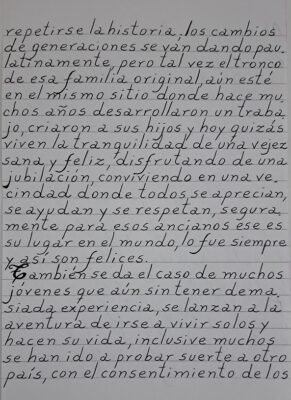 repetirse la historia, los cambios
de generaciones se ván dando pau_
latinamente, pero tal vez el tronco
de esa familia original, aún esté
en el mismo sitio donde hace mu_
chos años desarrollaron un traba_
jo, criaron a sus hijos y hoy quizás
viven la tranquilidad de una vejez
sana y feliz, disfrutando de una
jubilación, conviviendo en una ve_
cindad donde todos se aprecian,
se ayudan y se respetan, segura_
mente para esos ancianos ese es
su lugar en el mundo, lo fue siempre
y así son felices.
También se da el caso de muchos
jóvenes que aún sin tener dema_
siada experiencia, se lanzan a la
aventura de irse a vivir solos y
hacen su vida, inclusive muchos
se han ido a probar suerte a otro
país, con el consentimiento de los